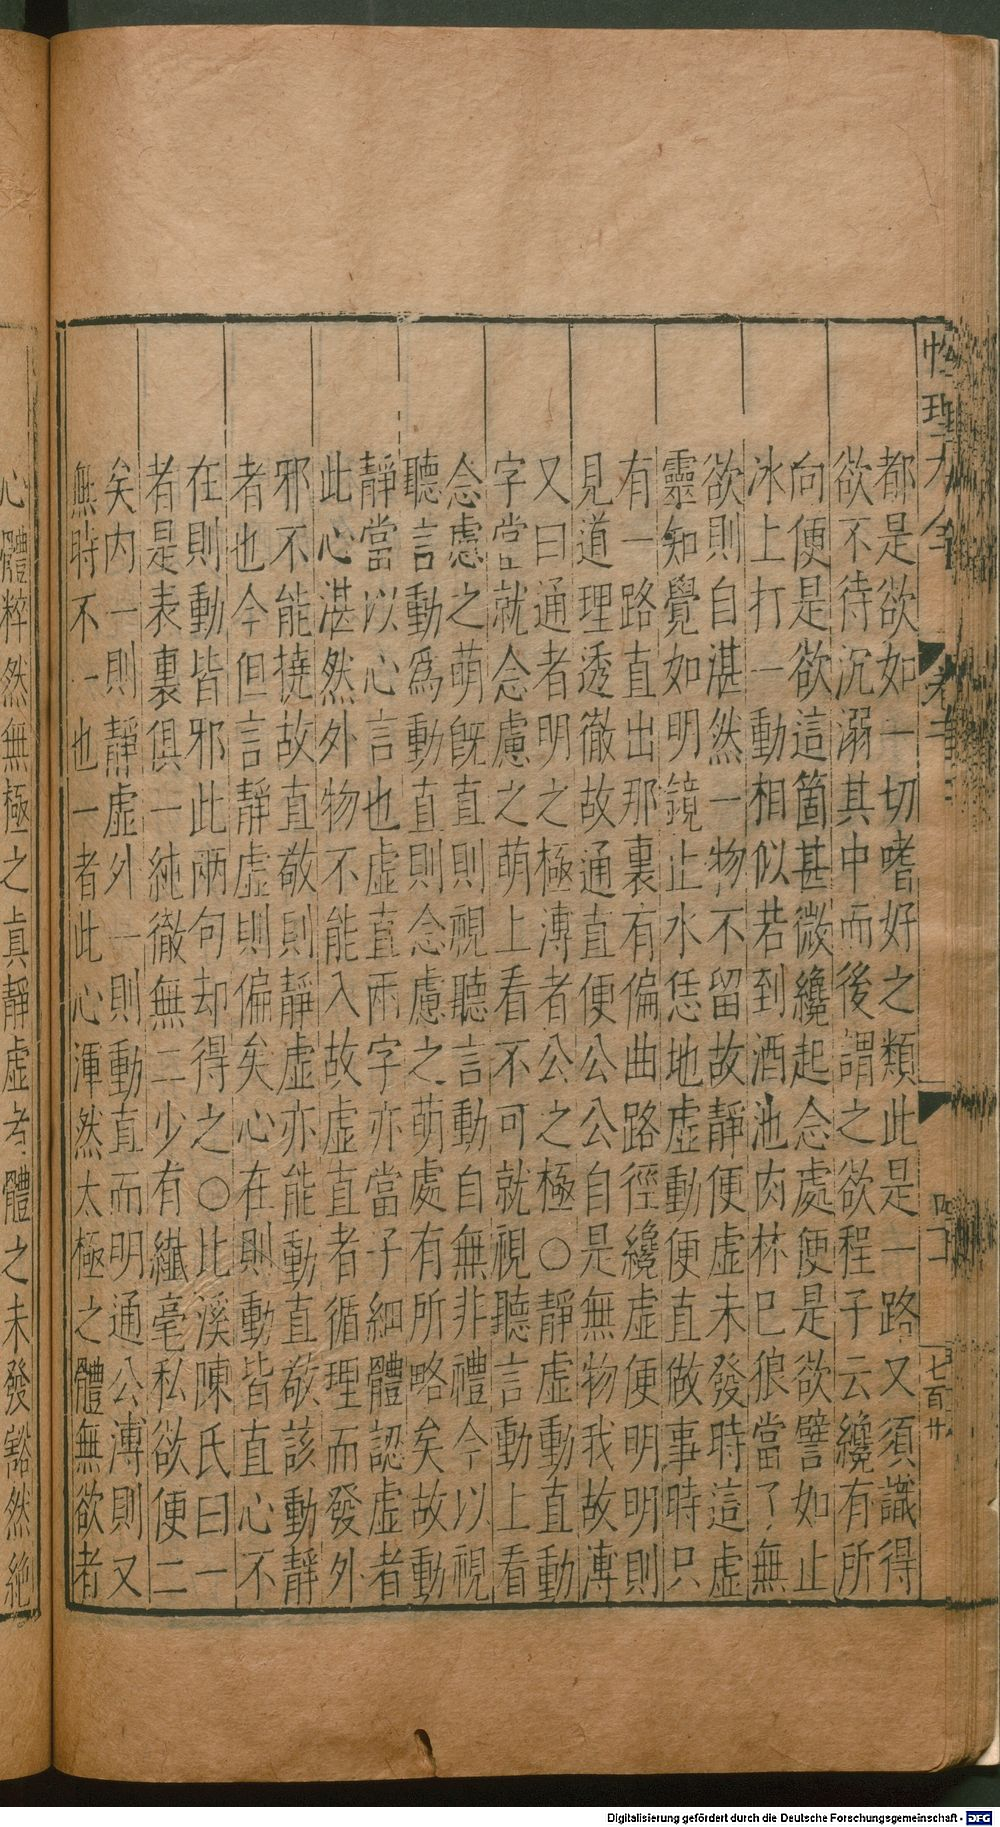 性理大全
卷二
七百廿
都是欲如一切嗜好之類此是一路又須識得
欲不待沉溺其中而後謂之欲程子云纔有所
向便是欲這箇甚微纔起念處便是欲譬如止
水上打一動相似若到酒池肉林已狼當了無
欲則自湛然一物不留故靜便虛未發時這虛
靈知覺如明鏡止水恁地虛動便直做事時只
有一路直出那裏有偏曲路徑纔虛便明明則
見道理透徹故通直便公公自是無物我故溥
又曰通者明之極溥者公之極○靜虛動直動
字當就念慮之萌上看不可就視聽言動上看
念慮之萌旣直則視聽言動自無非禮今以視
聽言動爲動直則念慮之萌處有所略矣故動
靜當以心言也虛直兩字亦當子細體認虛者
此心湛然外物不能入故虛直者循理而發外
邪不能撓故直敬則靜虛亦能動直敬該動靜
者也今但言靜虛則偏矣心在則動皆直心不
在則動皆邪此兩句却得之○北溪陳氏曰一
者是表裏俱一純徹無二少有纖毫私欲便二
矣内一則靜虛外一則動直而明通公溥則又
無時不一也一者此心渾然太極之體無欲者
心體粹然無極之眞靜虛者體之未發豁然絶
Digitalisierung gefördert durch die Deutsche Forschungsgemeinschaft - DFG